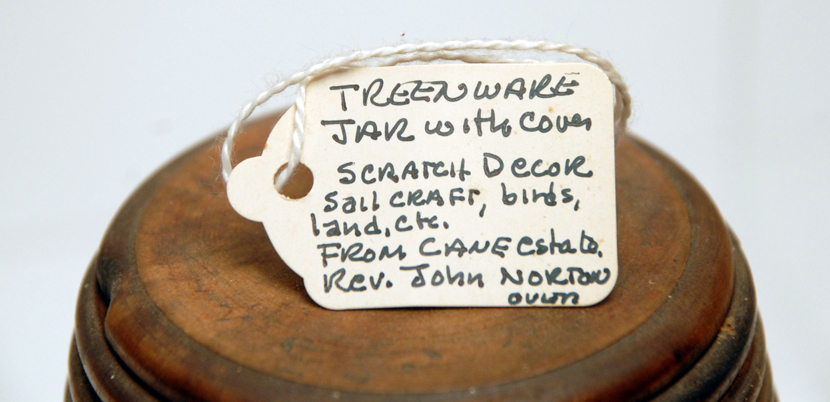 TREENWARE
JAR with Cover
SCRATCH DECOR
Sail CRAFT, birds,
land, etc.
FROM CANE estate.
Rev. John NORTON